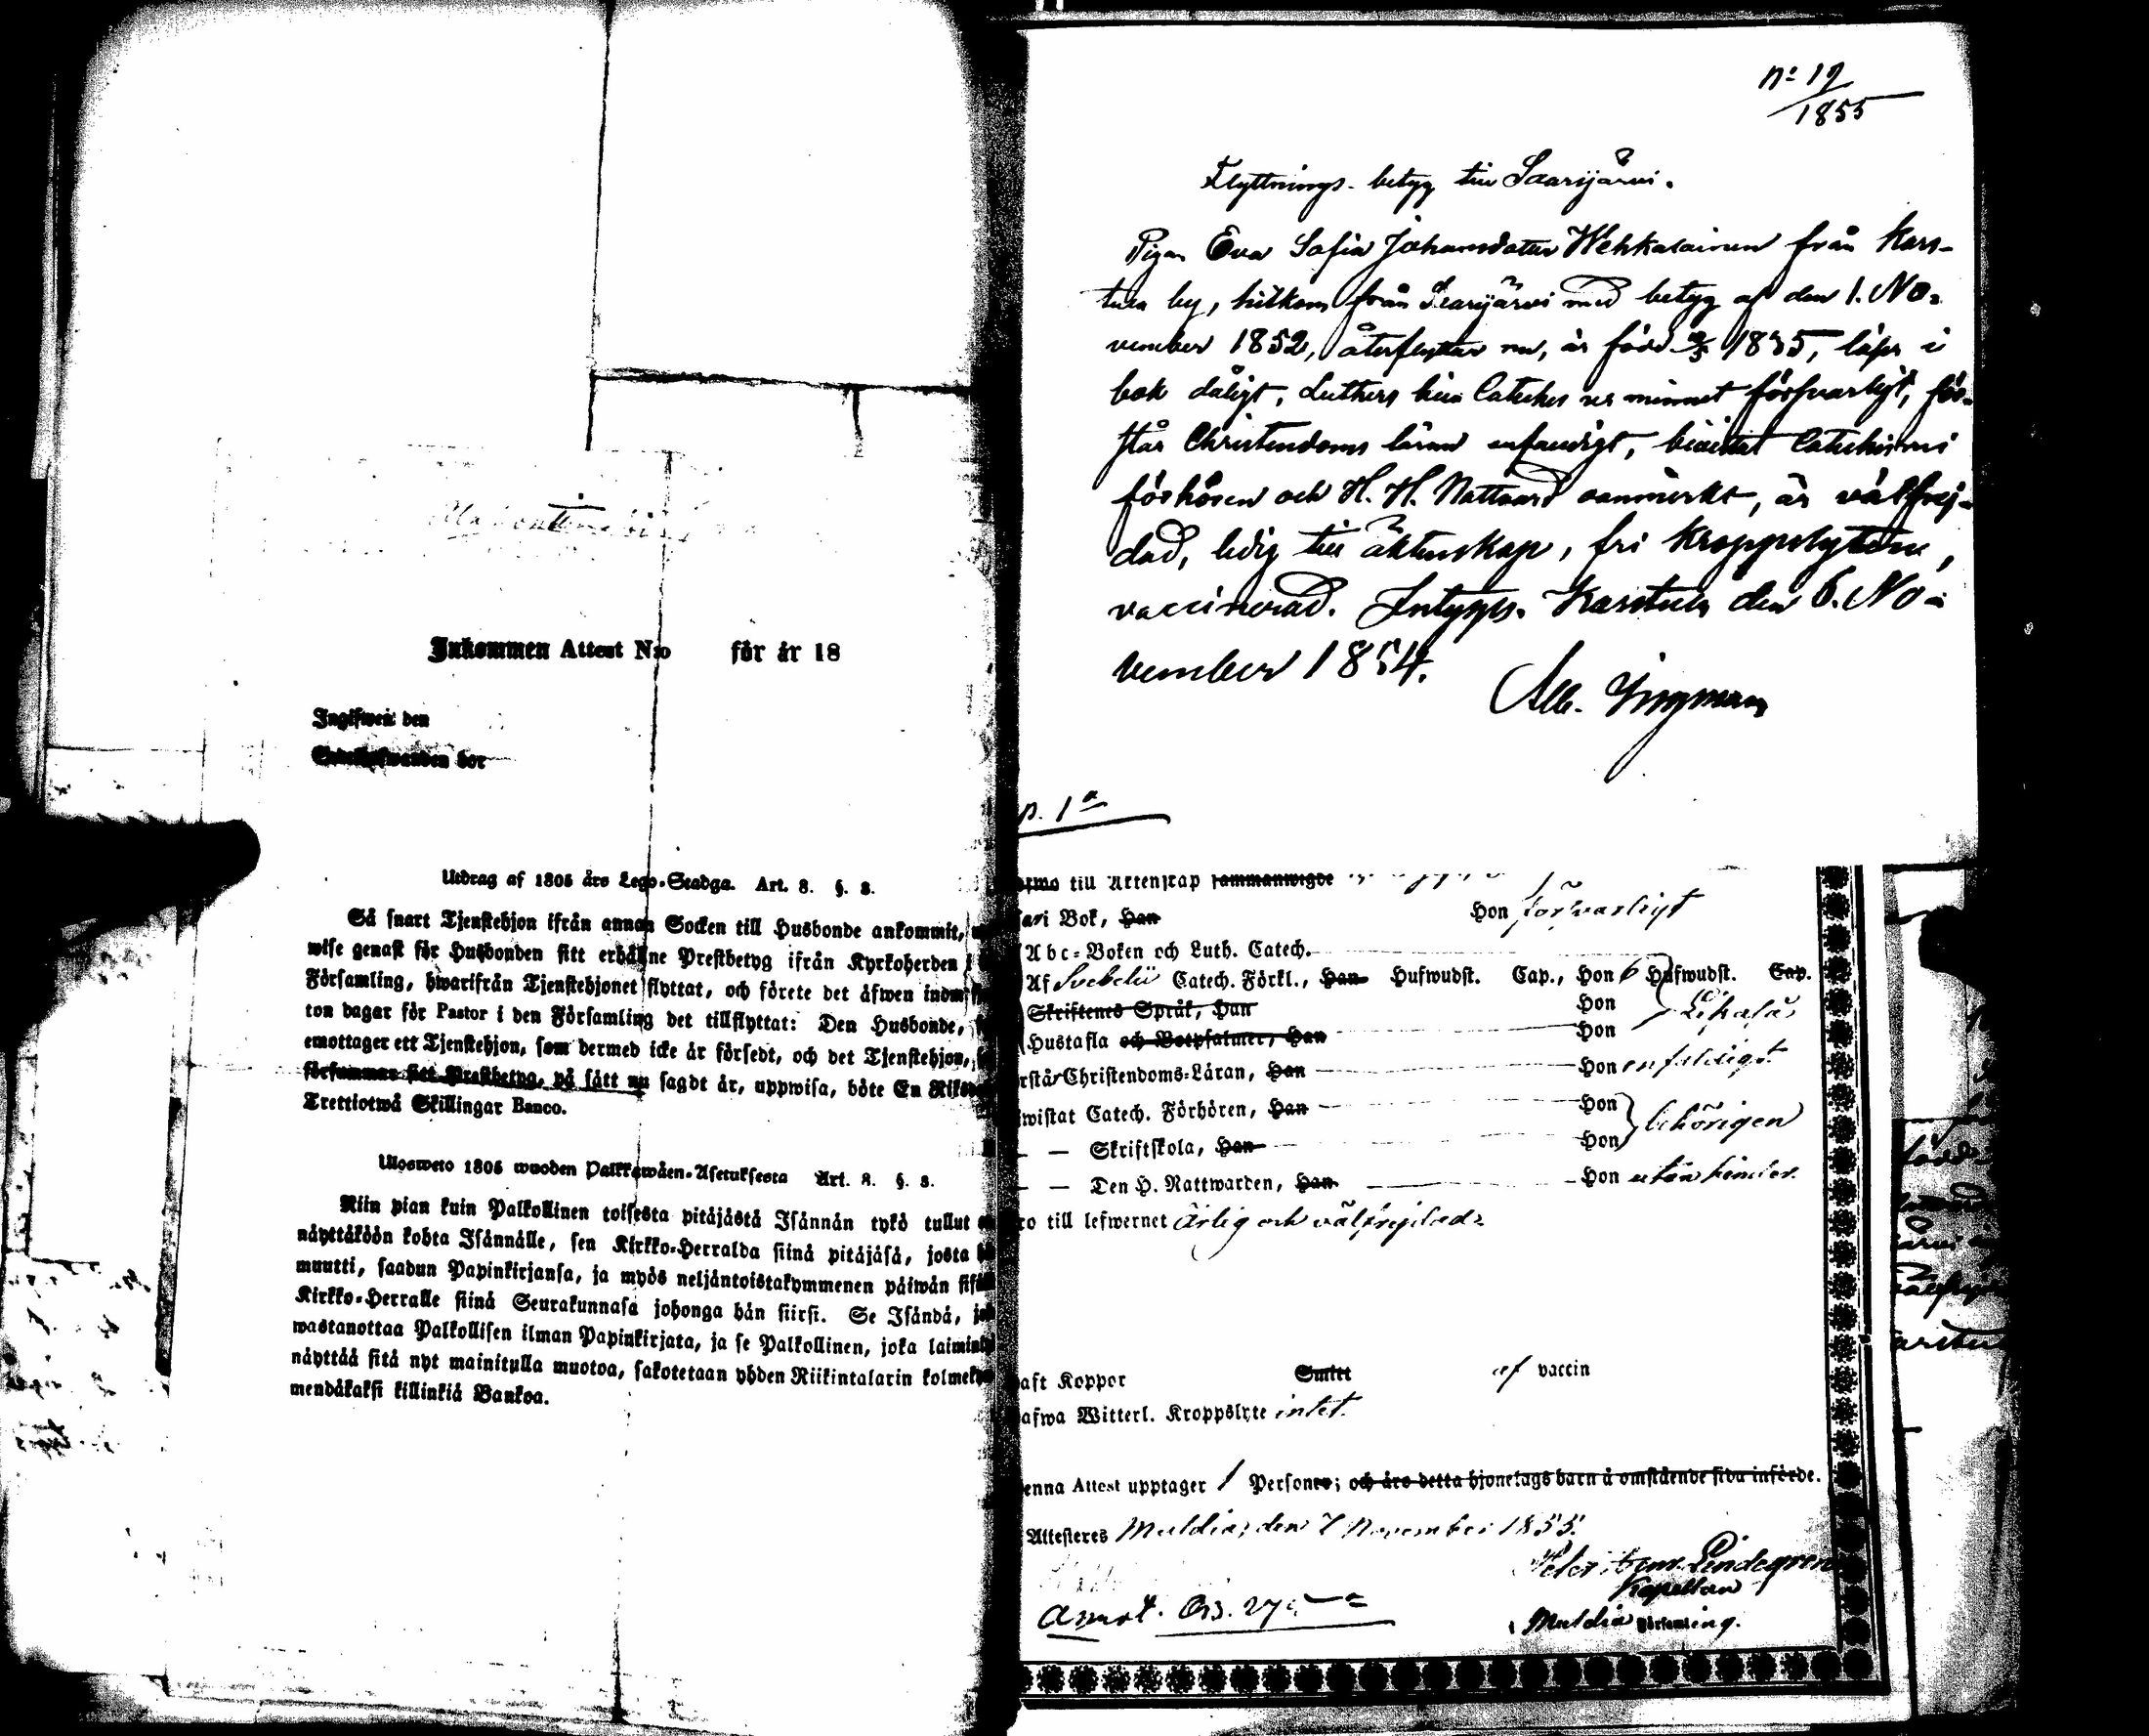 Inkommen Attest N:o för år 18
Ingifwen den
bor
Utdrag af 1805 års Lego-Stadga. Art. 8. §. 3.
Så snart Tjenstehjon ifrån annan Socken till Husbonde ankommit,
wise genast för Husbonden sitt erhållne Prestbetyg ifrån Kyrkoherden i
Församling, hwarifrån Tjenstehjonet flyttat, och förete det äfwen inom
ton dagar för Pastor i den Församling det tillflyttat: Den Husbonde,
emottager ett Tjenstehjon, som dermed icke är försedt, och det Tjenstehjon,
försummar sitt Prestbetyg, på sätt nu sagdt är, uppwisa, böte En
Trettiotwå Skillingar Banco.
Ulosweto 1805 wuoden Palkkawäen-Asetuksesta Art. 8. §. 3.
Niin pian kuin Palkollinen toisesta pitäjästä Isännän tykö tullut
näyttäköön kohta Isännälle, sen Kirkko-Herralda siinä pitäjäsä, josta
muutti, saadun Papinkirjansa, ja myös neljäntoistakymmenen päiwän
Kirkko-Herralle siinä Seurakunnasa johonga hän siirsi. Se Isändä,
wastanottaa Palkollisen ilman Papinkirjata, ja se Palkollinen, joka
näyttää sitä nyt mainitulla muotoa, sakotetaan yhden Riikintalarin
mendäkaksi killinkiä Bankoa.
n:o 19
1855
Flyttnings-betyg till Saarijärvi.
Pigan Eva Sofia Johansdotter Wehkalainen från Kars-
tula by, hitkom från Saarijärvi med betyg af den 1. No-
vember 1852, återflyttar nu, är född 1835, läser i
bok dåligt, Luthers lilla Cateches ur minnet försvarligt, för-
står Christendoms läran enfaldigt, bivistat Catechismi
förhören och H. H. Nattvard oanmärkt, är välfrej-
dad, ledig till äktenskap, fri kroppslyten,
vaccinerad. Intygas. Karstula den 6. No-
vember 1854.
Alb. Yngman
p. 1a
till Äktenskap sammanwigde
Bok, Han Hon försvarligt
Abc-Boken och Luth. Catech.
Af Svebelii Catech. Förkl., Han Hufwudst. Cap., Hon 6 Hufwudst. Cap.
Skriftenes Språk, Han Hon Likaså
Hustafla och Botpsalmer, Han Hon
Christendoms-Läran, Han Hon enfaldigt
wistat Catech. Förhören, Han Hon behörigen
— — Skriftskola, Han Hon
— — Den H. Nattwarden, Han Hon utan hinder.
till lefwernet ärlig och välfrejdad
haft Koppor Smitt af vaccin
hafwa Witterl. Kroppslyte intet.
enna Attest upptager 1 Personer; och äro detta hjonelags barn å omstående sida införde.
Attesteres Multia, den 7 November 1855.
Lindegren
Kapellan
i Multia Församling.